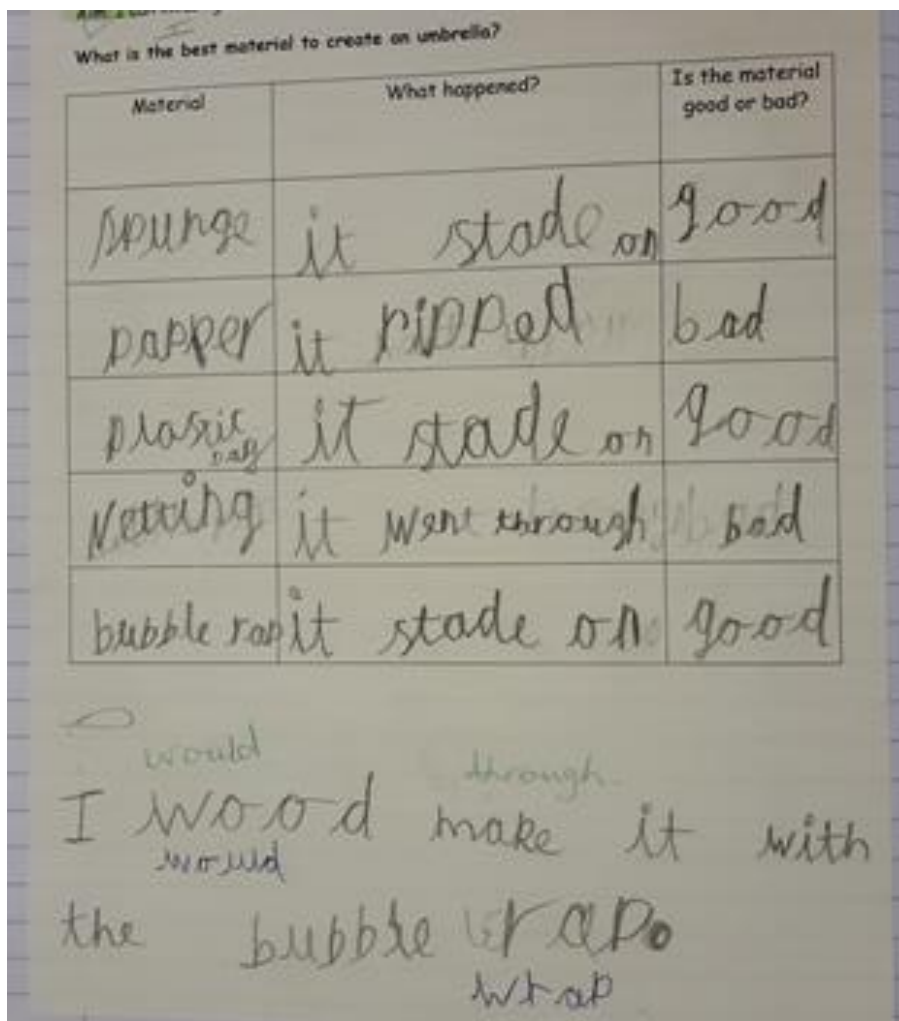 What is the best material to create an umbrella?
Material What happened? Is the material good or bad?
spunge it stade on good
papper it ripped bad
plasic bag it stade on good
Netting it went through bad
bubble rap it stade on good
would through
I wood make it with
would
the bubble rap.
wrap